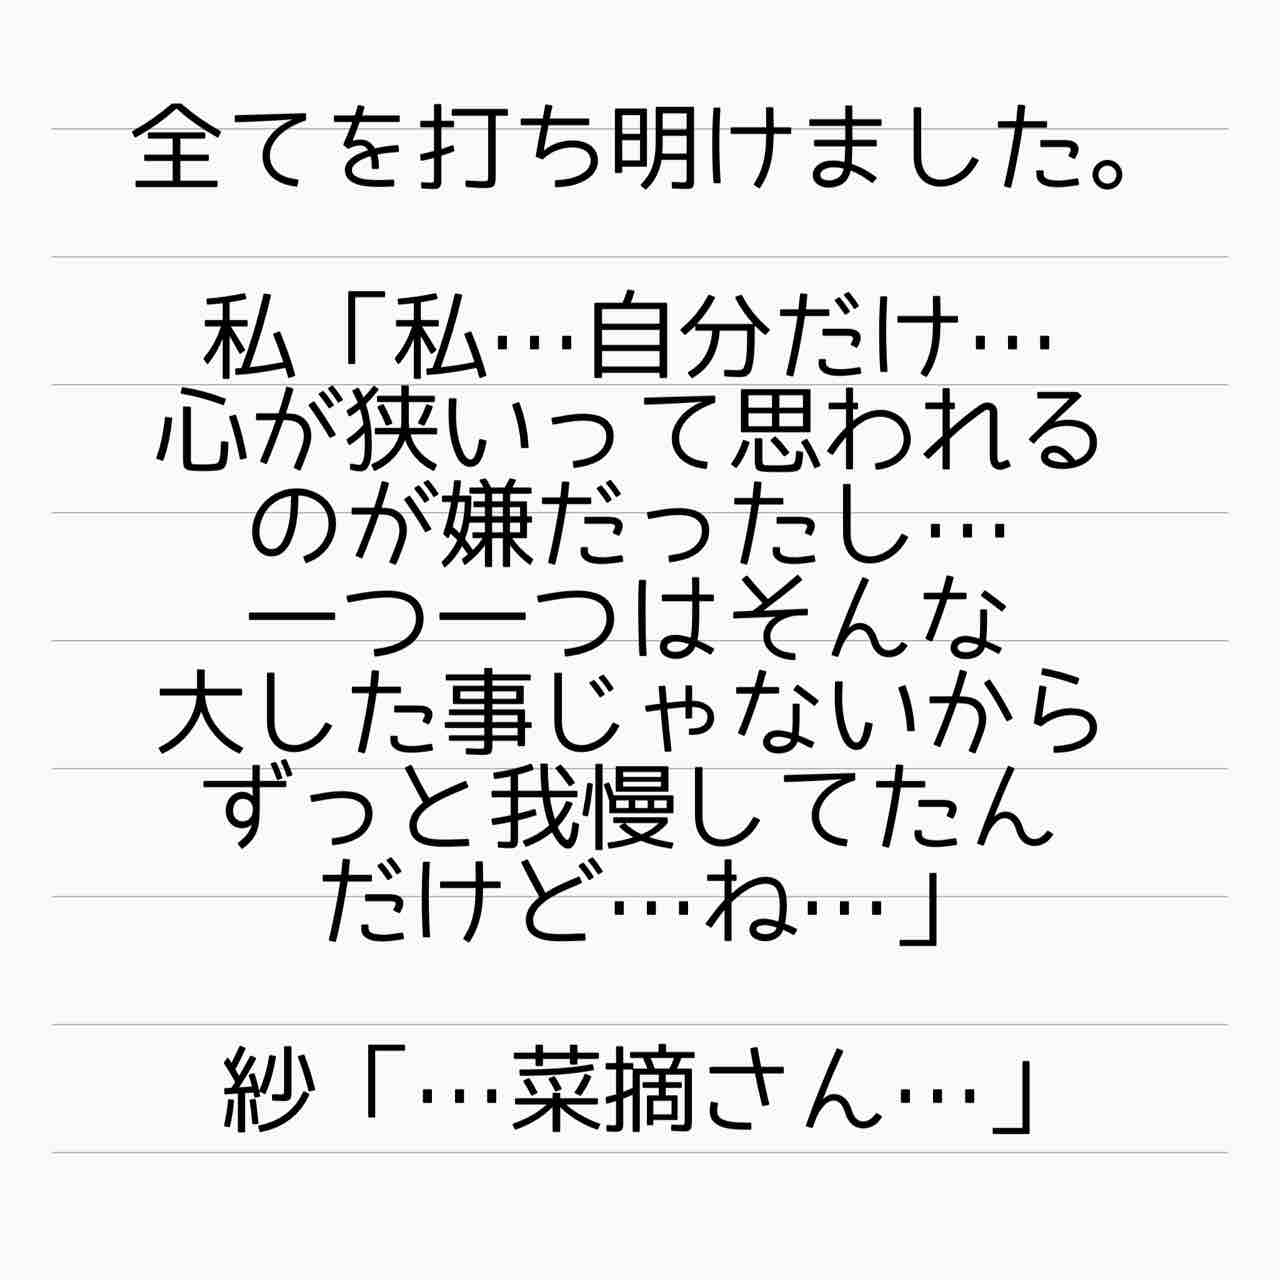 全てを打ち明けました。
私「私…自分だけ…
心が狭いって思われる
のが嫌だったし…
一つ一つはそんな
大した事じゃないから
ずっと我慢してたん
だけど…ね…」
紗「…菜摘さん…」